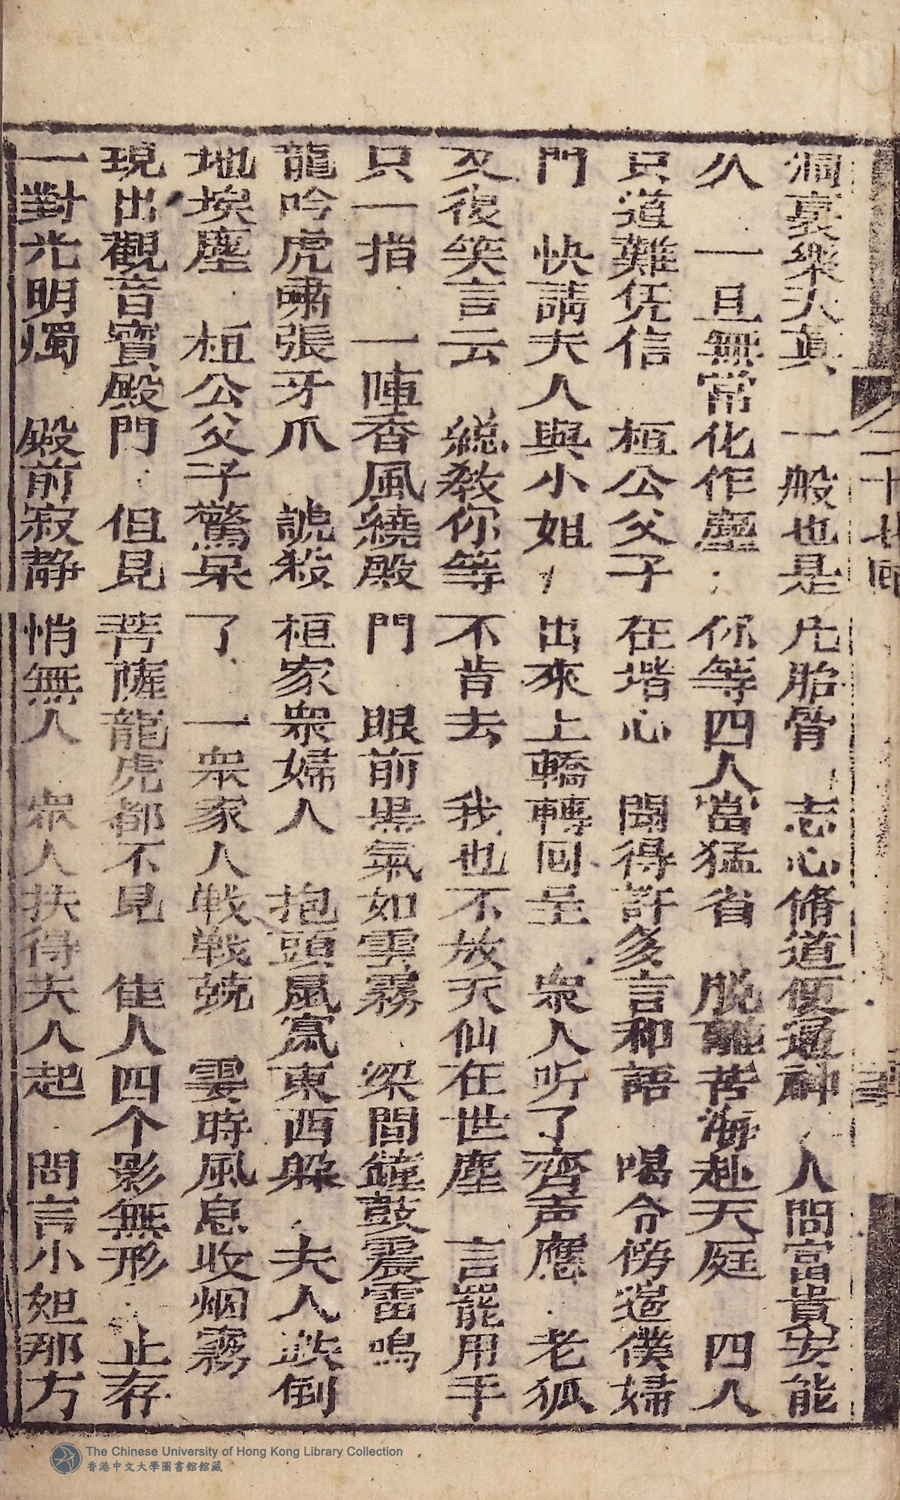 洞裏樂天眞 一般也是凡胎骨 志心脩道便通神 人間富貴安能
久 一旦無常化作塵 你等四人當猛省 脫離苦海赴天庭 四人
只道難凭信 桓公父子在堦心 聞得許多言和語 喝令傍邉僕婦
門 快請夫人與小姐 出來上轎轉回呈 衆人听了齊声應 老狐
又復笑言云 縂教你等不肯去 我也不放天仙在世塵 言罷用手
只一指 一陣香風繞殿門 眼前黒氣如雲霧 梁間鐘鼓震雷鳴
龍吟虎嘯張牙爪 諕殺桓家衆婦人 抱頭鼠竄東西躲 夫人跌倒
地埃塵 桓公父子驚呆了 一衆家人戰戰兢 霎時風息收烟霧
現出觀音寳殿門 但見菩薩龍虎都不見 佳人四个影無形 止存
一對光明燭 殿前寂静悄無人 衆人扶得夫人起 問言小姐那方
二十七囬
The Chinese University of Hong Kong Library Collection
香港中文大學圖書館館藏